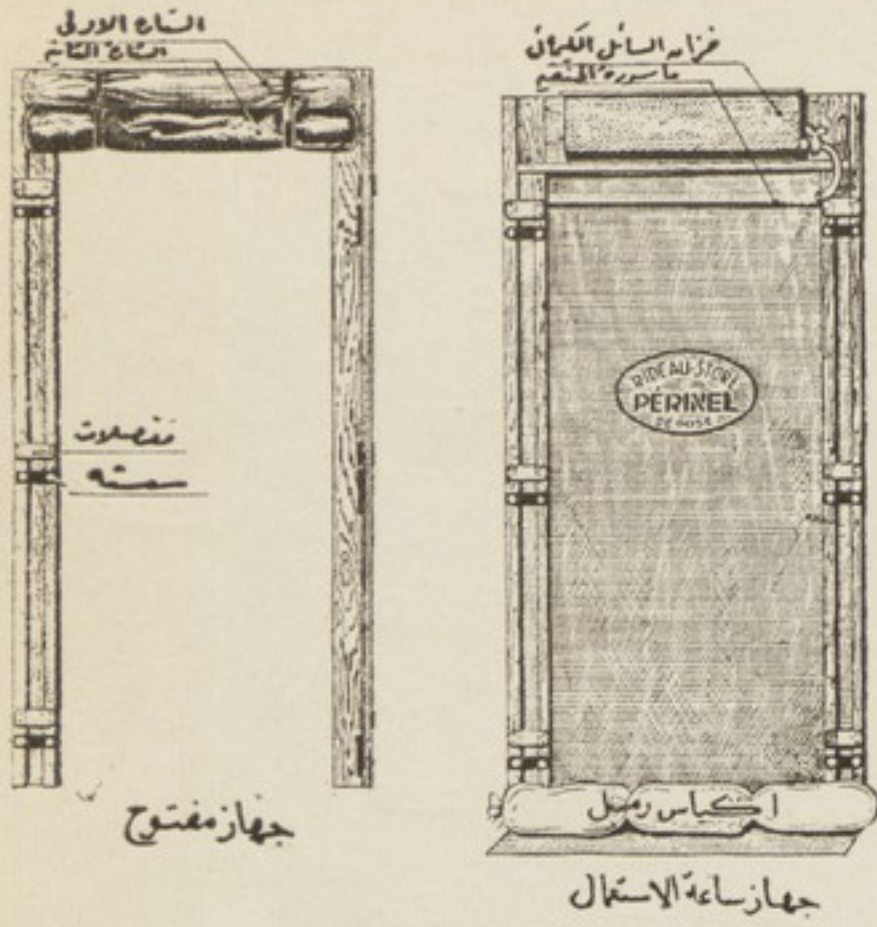 الستارة الاولى
الستارة الثانية
مفصلات
جهاز مفتوح
خزان السائل الكيماوي
ماسورة التنقيط
RIDEAU-STORE
PÉRINEL
DEPOSE
اكياس رمل
جهاز ساعة الاستعمال